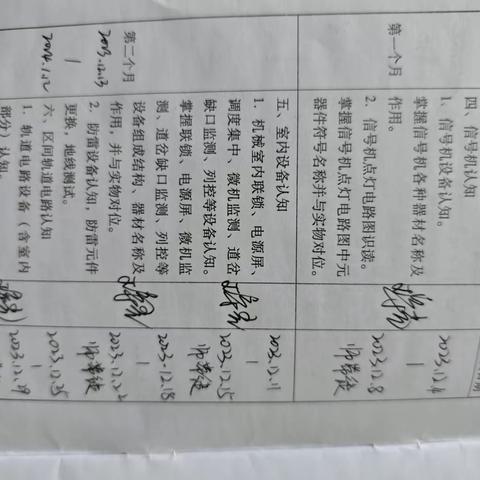 第一个月
四、信号机认知
1、信号机设备认知。
掌握信号机各种器材名称及
作用。
2、信号机点灯电路图识读。
掌握信号机点灯电路图中元
器件符号名称并与实物对位。
2023.12.4
2023.12.8
师带徒
第二个月
2023.12.13
2024.1.12
五、室内设备认知
1、机械室内联锁、电源屏、
调度集中、微机监测、道岔
缺口监测、列控等设备认知。
掌握联锁、电源屏、微机监
测、道岔缺口监测、列控等
设备组成结构、器材名称及
作用，并与实物对位。
2、防雷设备认知，防雷元件
更换，地线测试。
六、区间轨道电路认知
1、轨道电路设备（含室内
部分）认知。
2023.12.11
2023.12.15
师带徒
2023.12.18
2023.12.22
师带徒
2023.12.25
2023.12.29